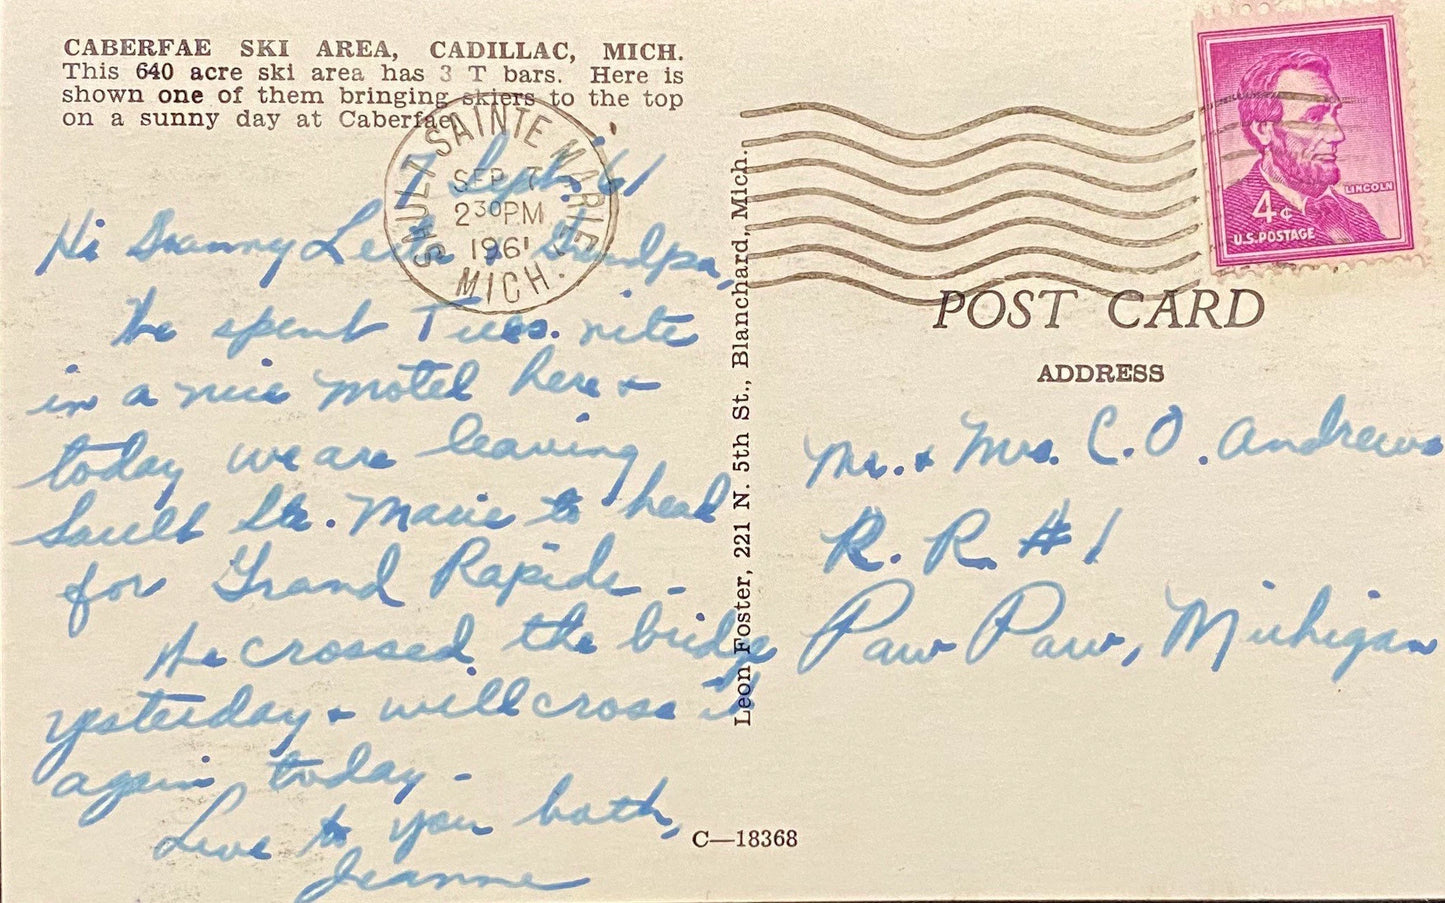 CABERFAE SKI AREA, CADILLAC, MICH.
This 640 acre ski area has 3 T bars. Here is
shown one of them bringing skiers to the top
on a sunny day at Caberfae.
SAULT SAINTE MARIE
SEP 7
2 30 PM
1961
MICH.
7 Sept. 61
Hi Granny & Grandpa,
We spent Tues. nite
in a nice motel here &
today we are leaving
Sault Ste. Marie to head
for Grand Rapids -
We crossed the bridge
yesterday & will cross it
again today -
Love to you both,
Jeanne
Leon Foster, 221 N. 5th St., Blanchard, Mich.
C—18368
4¢
LINCOLN
U.S. POSTAGE
POST CARD
ADDRESS
Mr. & Mrs. C. O. Andrews
R. R. #1
Paw Paw, Michigan